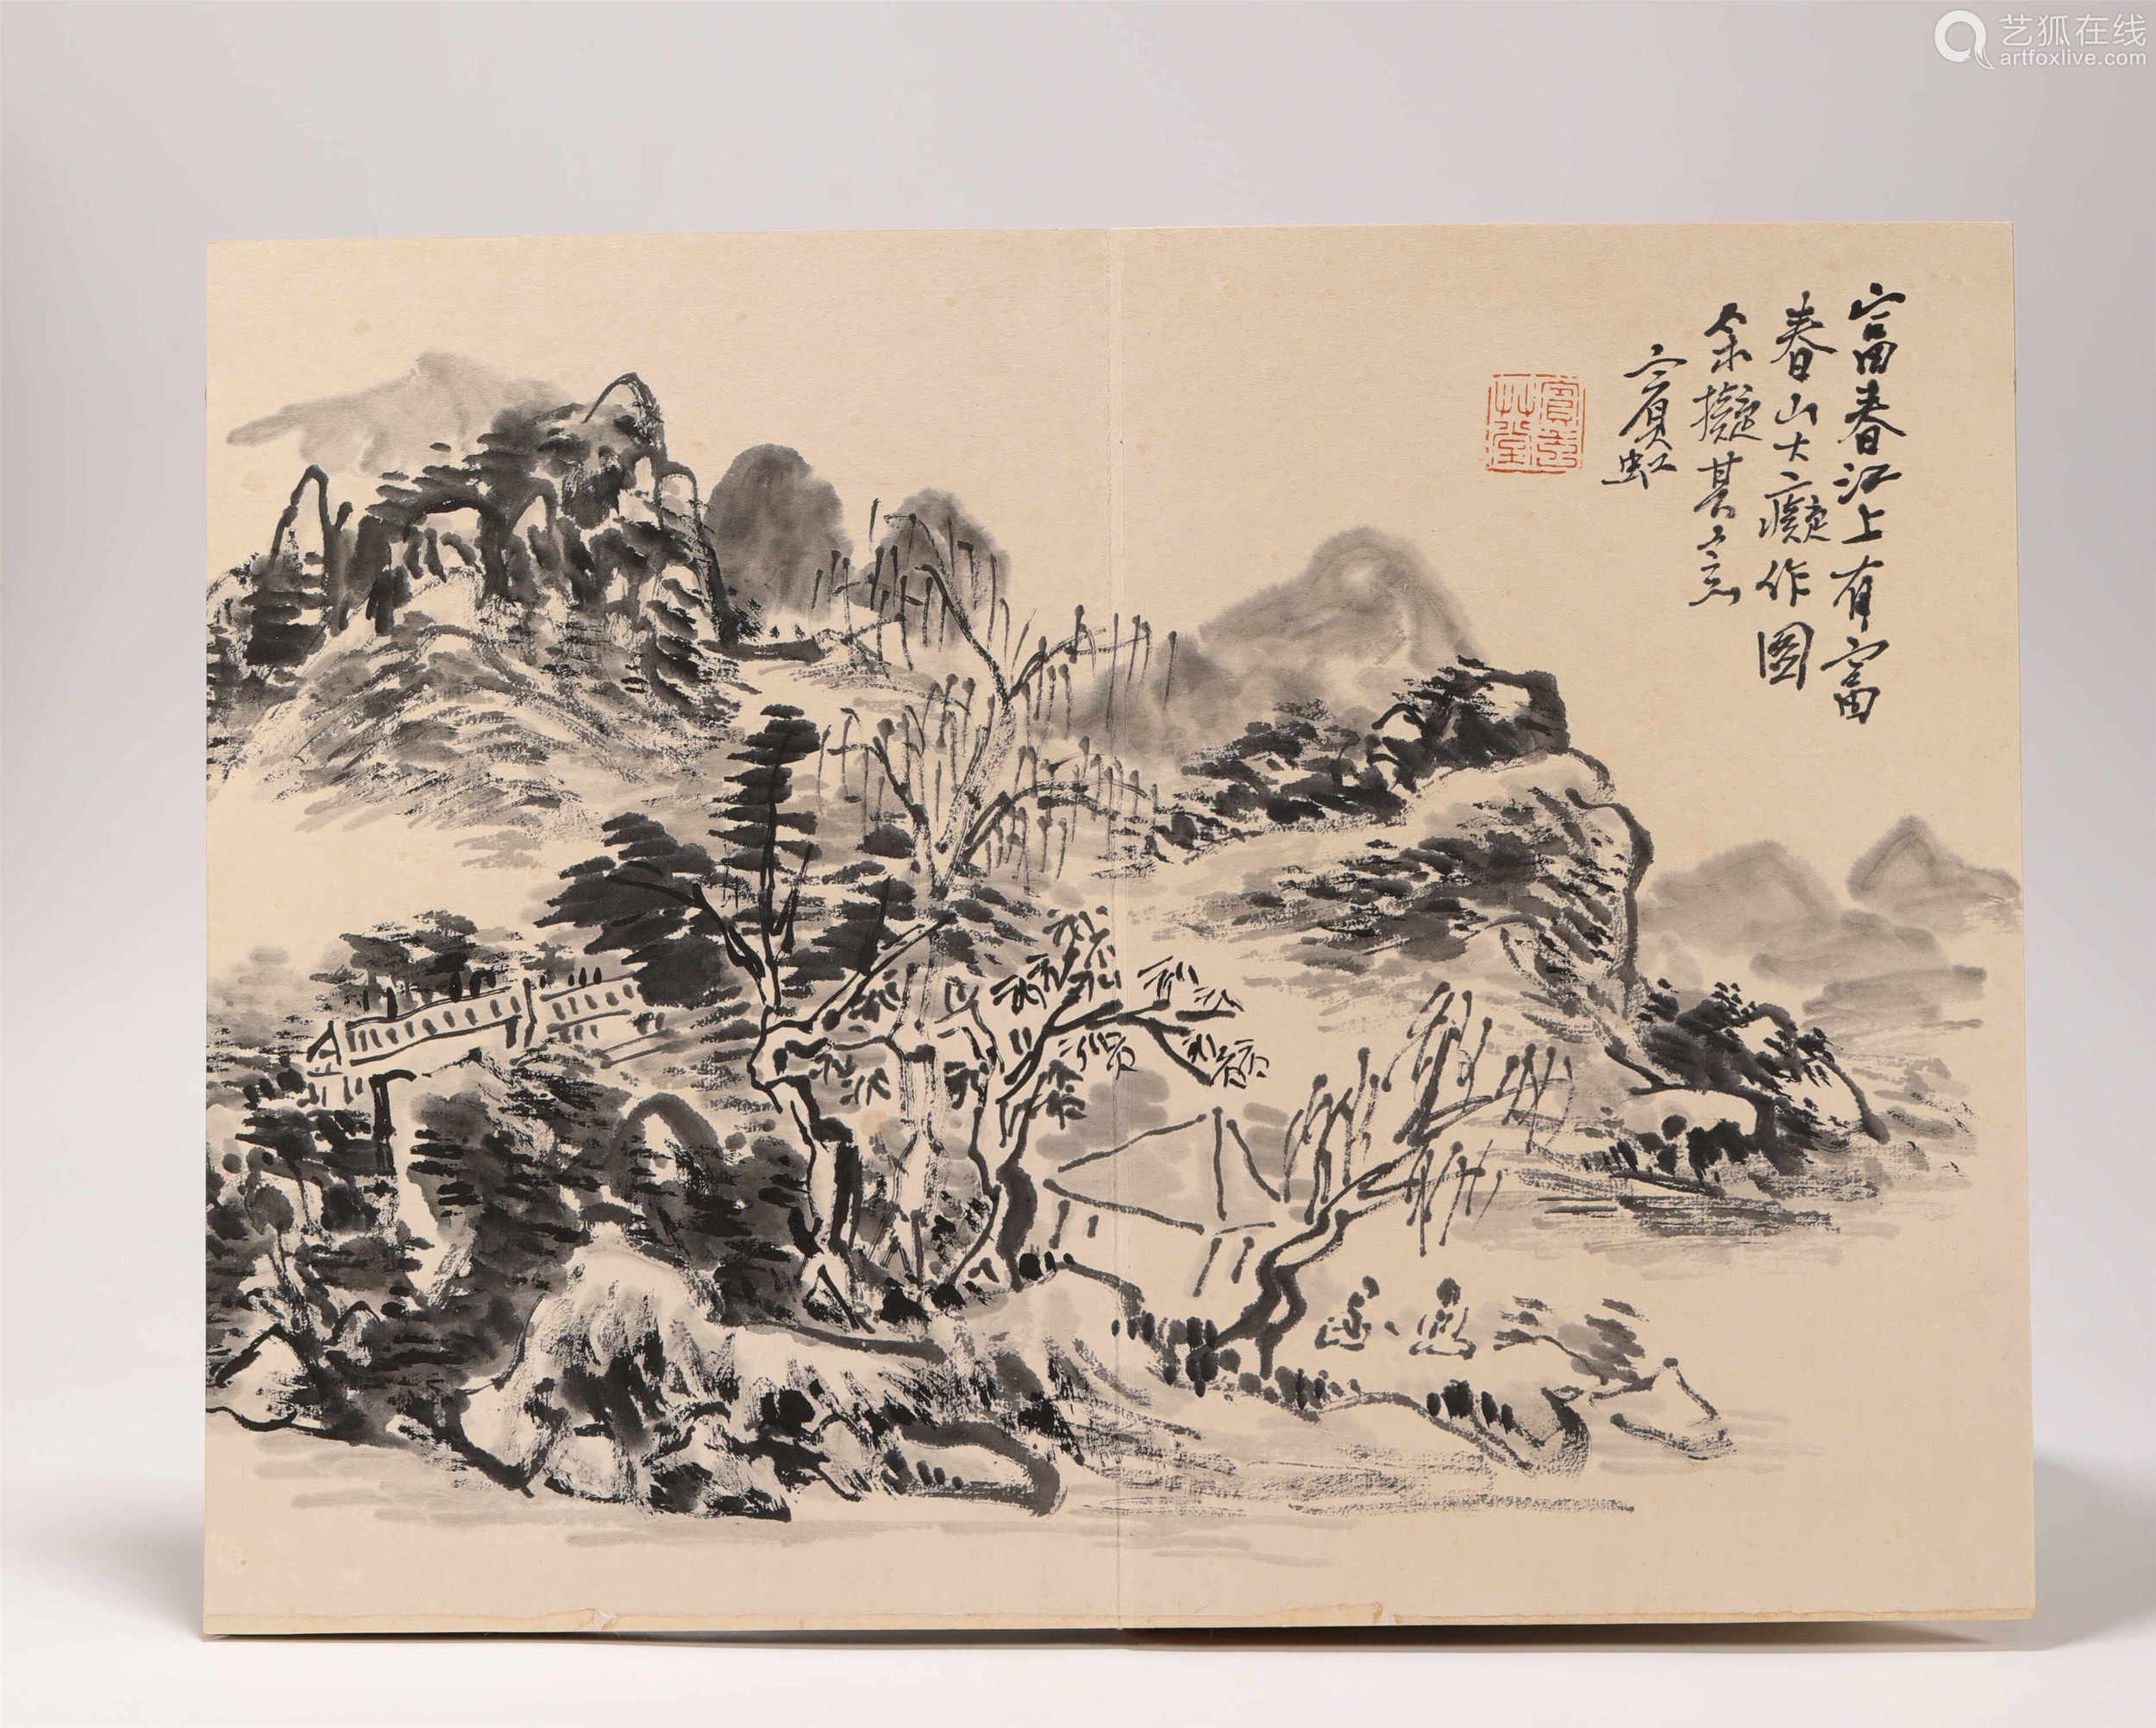 艺狐在线
artfoxlive.com
富春江上有富
春山大癡作图
余擬其意
宾虹